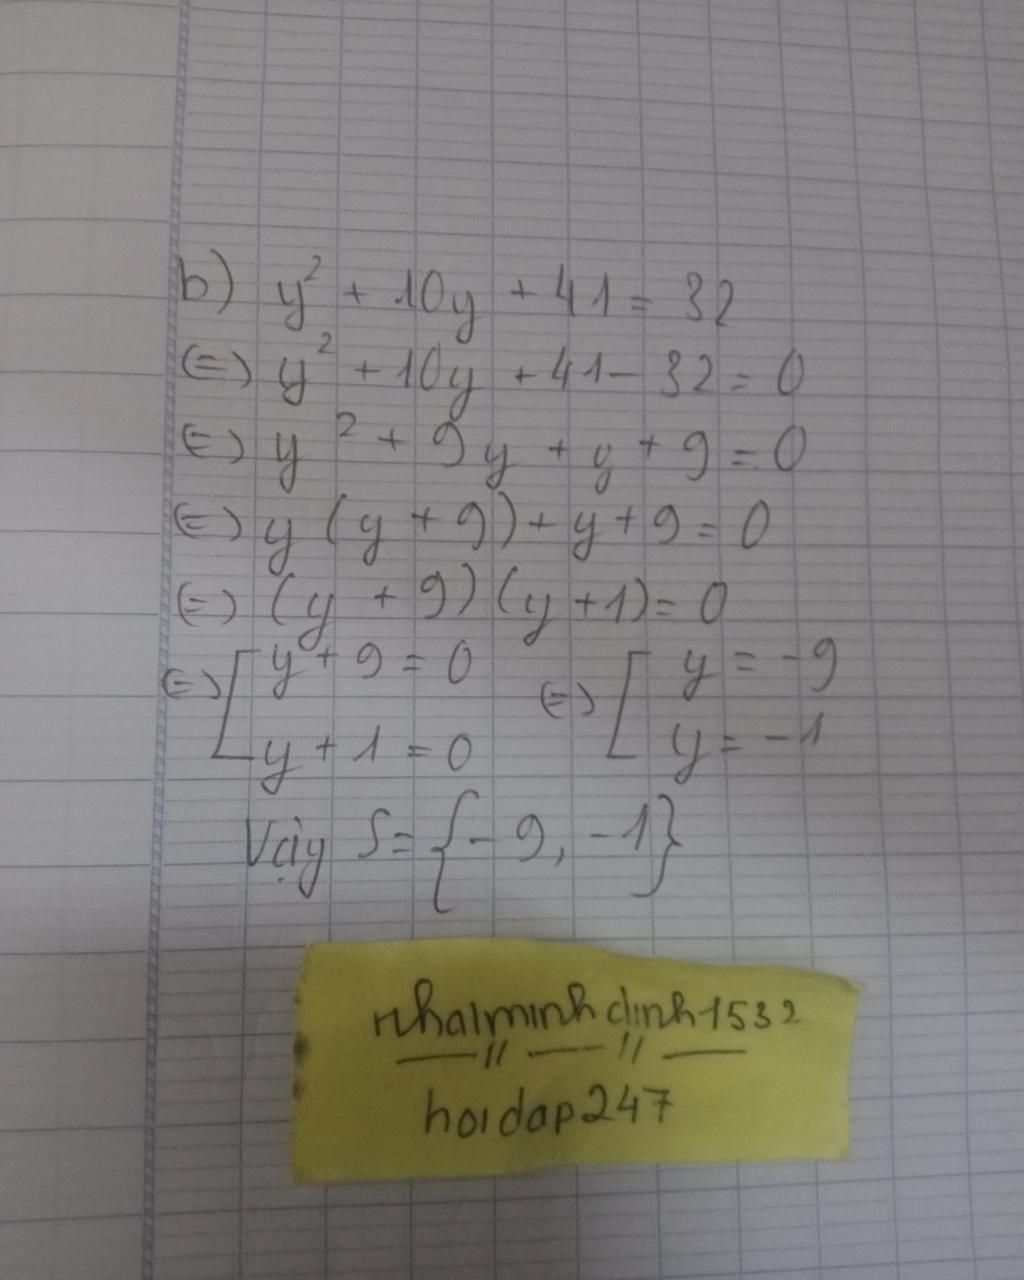 b) y² + 10y + 41 = 32
(=) y² + 10y + 41 - 32 = 0
(=) y² + 9y + y + 9 = 0
(=) y (y + 9) + y + 9 = 0
(=) (y + 9) (y + 1) = 0
(=) [ y + 9 = 0 (=) [ y = -9
y + 1 = 0 y = -1
Vậy S = {-9, -1}
nhalminhdinh1532
hoidap247